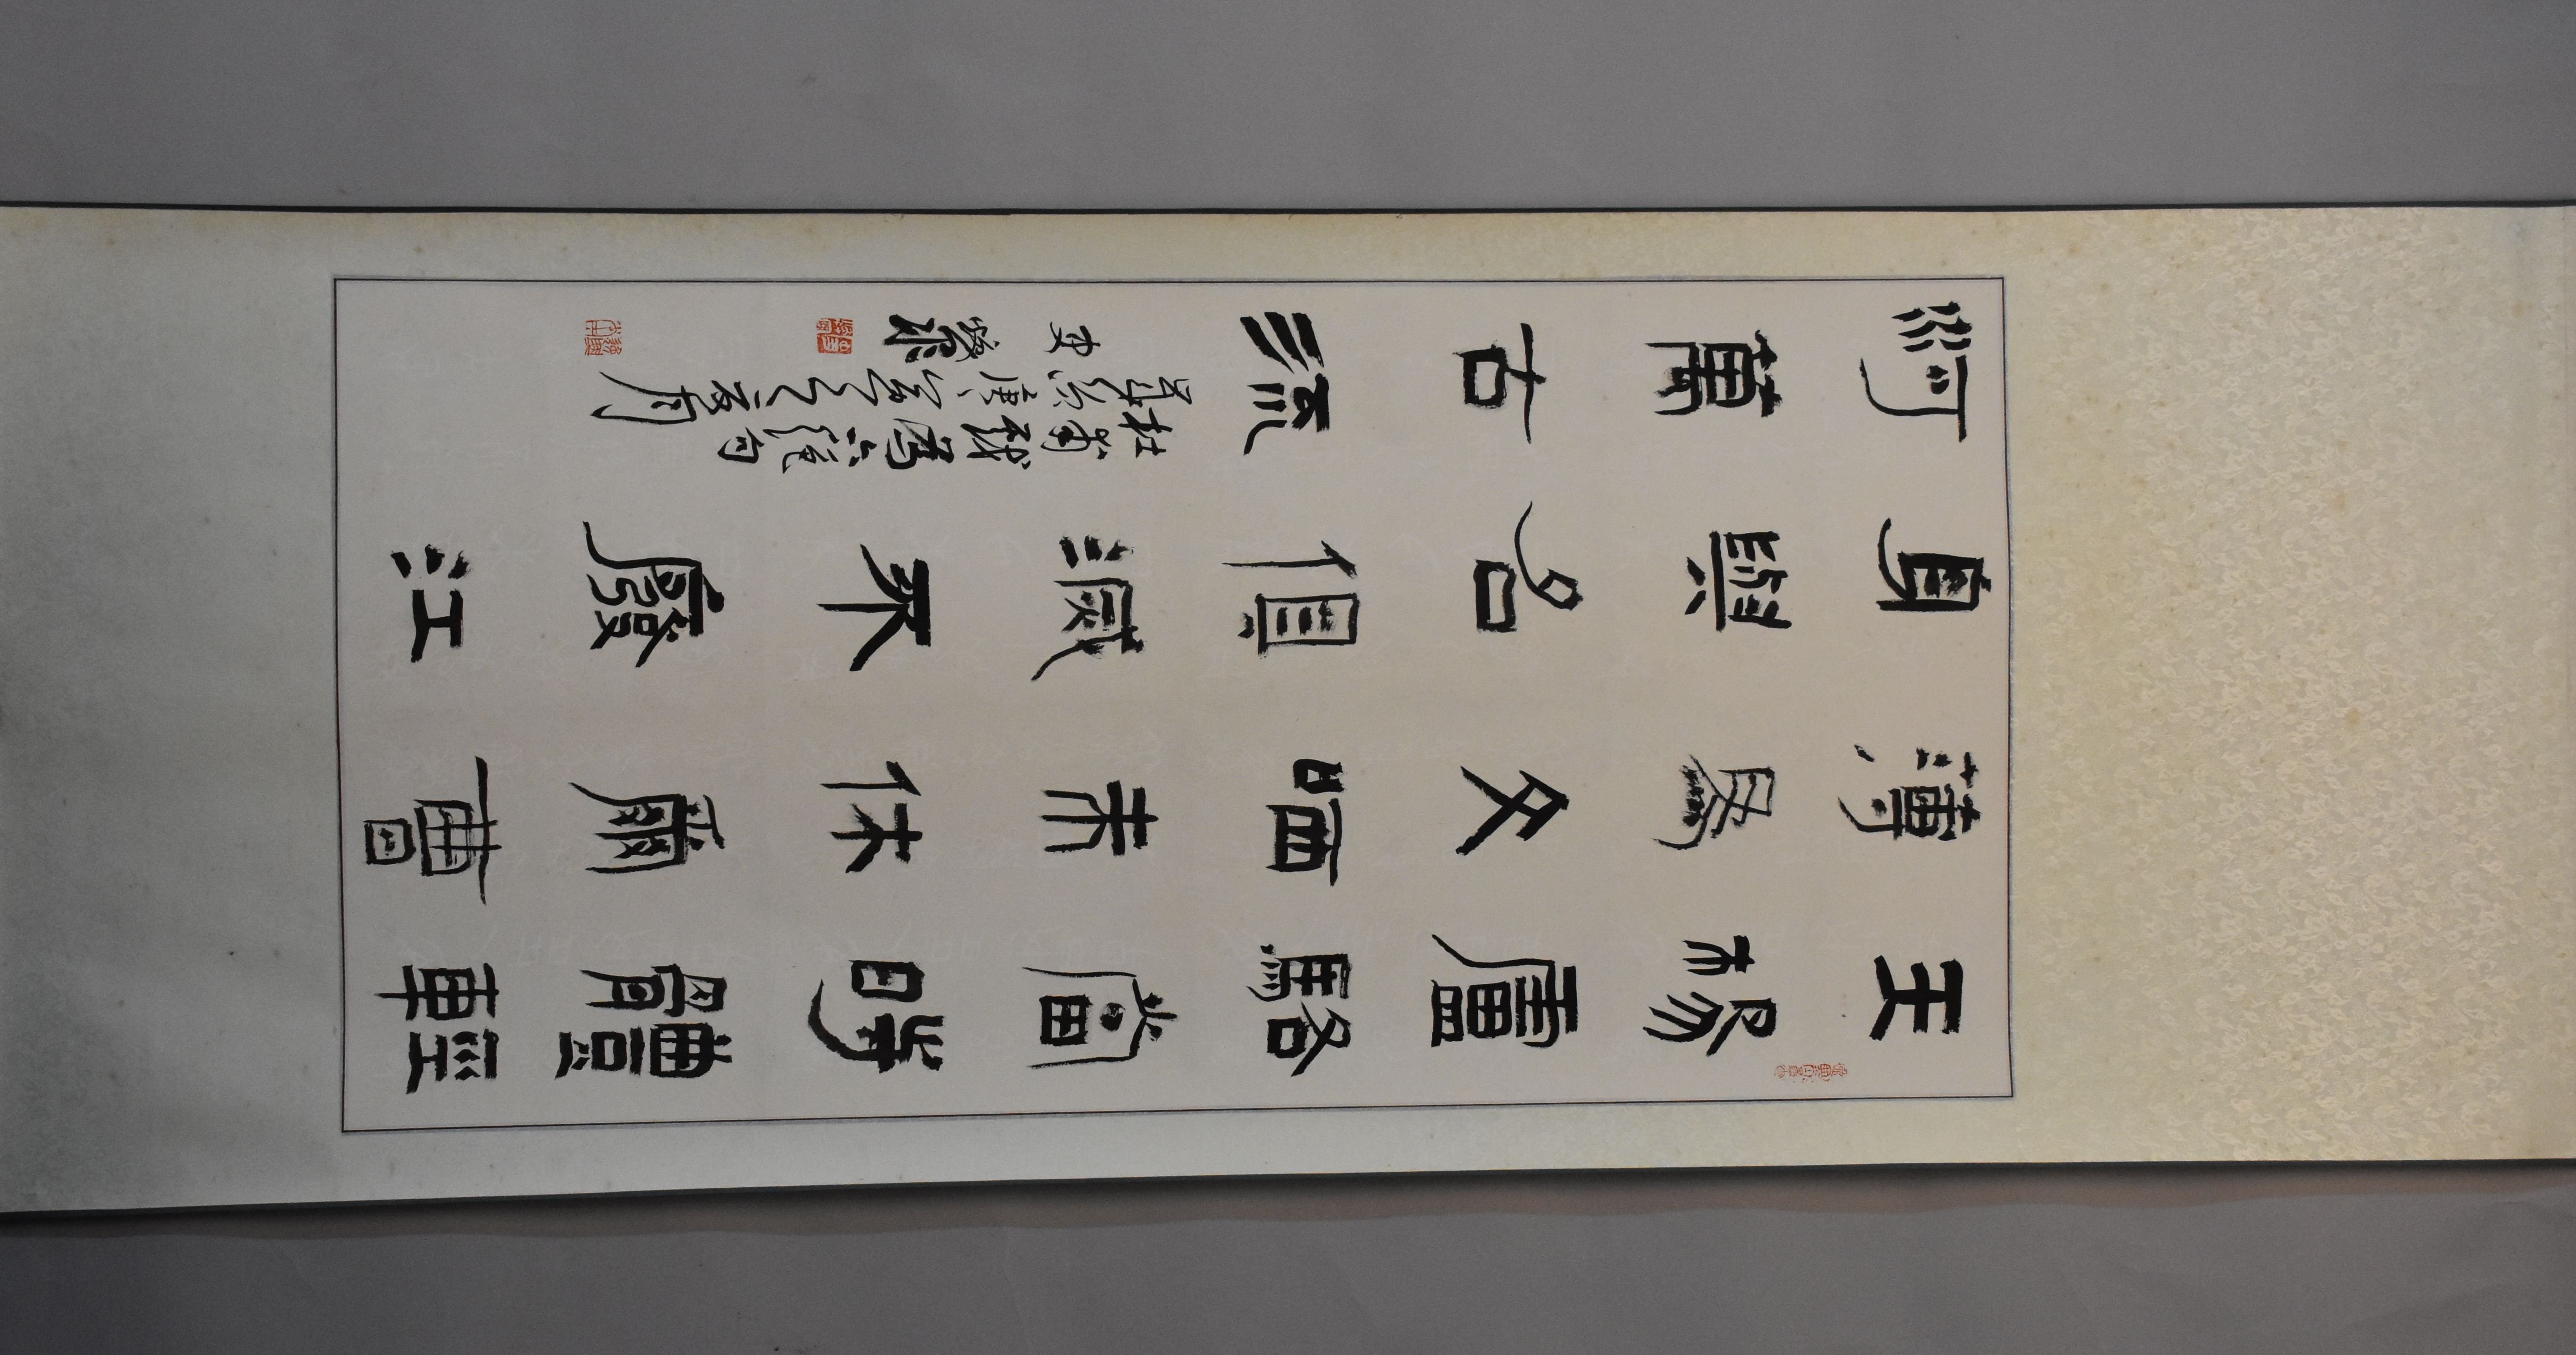 王楊盧駱當時體輕
薄為文哂未休爾曹
身與名俱滅不廢江
河萬古流
杜甫戲為六絕句
歲次庚寅之夏月